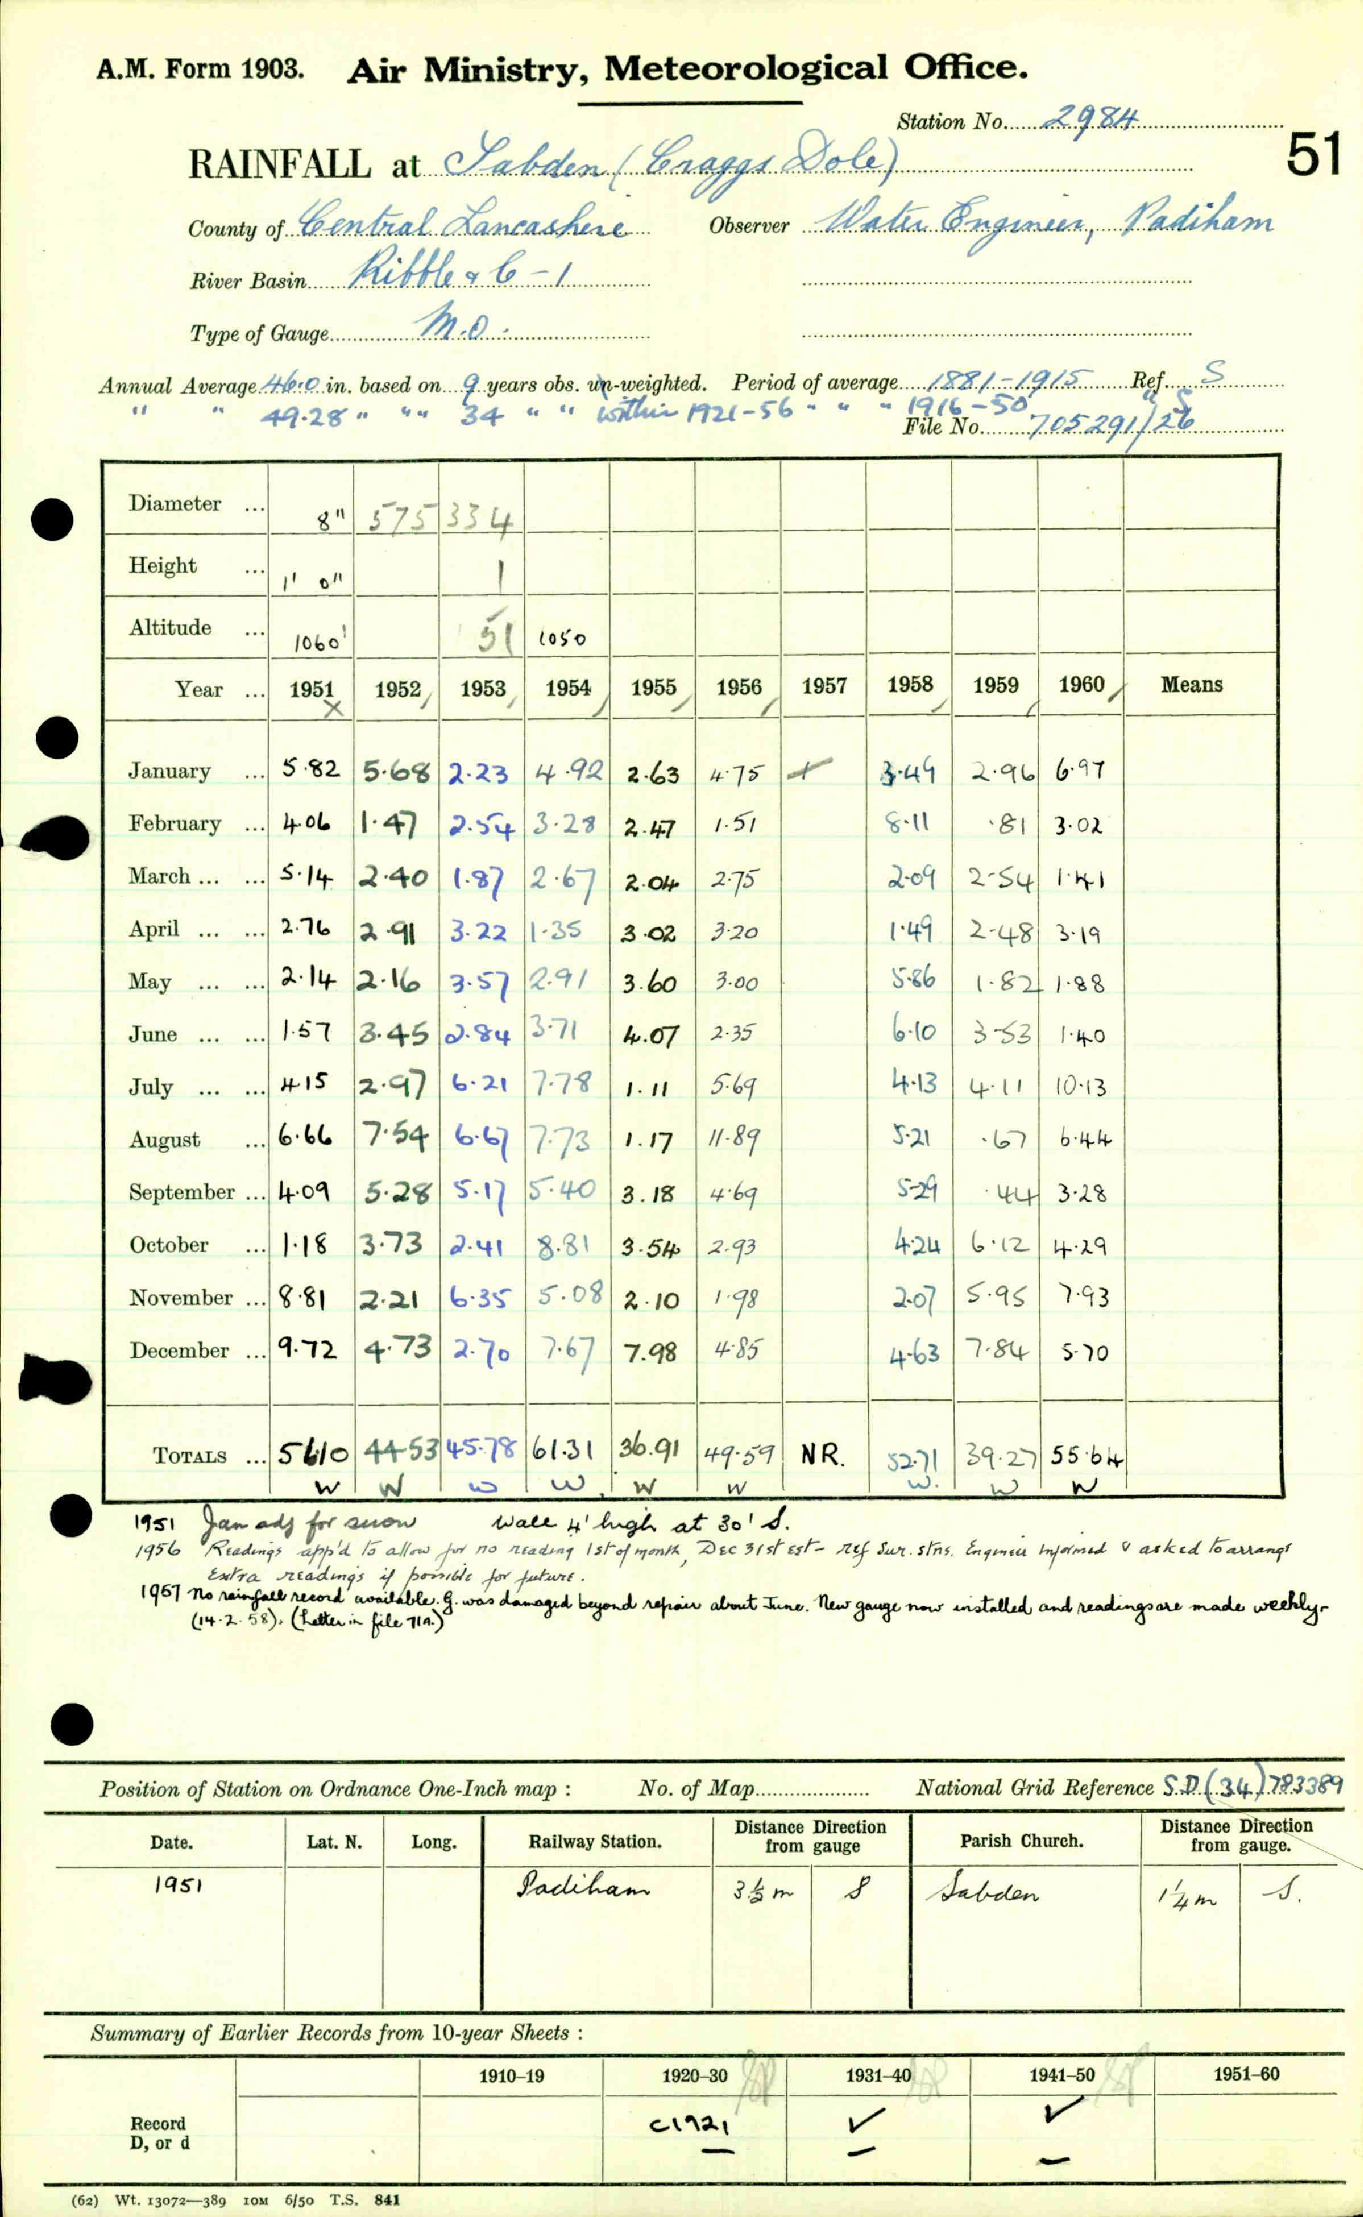 A.M. Form 1903. Air Ministry, Meteorological Office.
Station No. 2984
51
RAINFALL at Sabden (Craggs Dole)
County of Central Lancashire Observer Water Engineer, Padiham
River Basin Ribble & C - 1
Type of Gauge M.O.
Annual Average 46.0 in. based on 9 years obs. un-weighted. Period of average 1881-1915 Ref. S
" " 49.28 " " " 34 " " within 1921-56 " " " 1916-50 " S
File No. 705291/26
Diameter ... 8" 575 334
Height ... 1' 0" 1
Altitude ... 1060' 51 1050
Year ... 1951 1952 1953 1954 1955 1956 1957 1958 1959 1960 Means
X
January ... 5.82 5.68 2.23 4.92 2.63 4.75 + 3.49 2.96 6.97
February ... 4.06 1.47 2.54 3.28 2.47 1.51 8.11 .81 3.02
March ... ... 5.14 2.40 1.87 2.67 2.04 2.75 2.09 2.54 1.41
April ... ... 2.76 2.91 3.22 1.35 3.02 3.20 1.49 2.48 3.19
May ... ... 2.14 2.16 3.57 2.91 3.60 3.00 5.86 1.82 1.88
June ... ... 1.57 3.45 2.84 3.71 4.07 2.35 6.10 3.53 1.40
July ... ... 4.15 2.97 6.21 7.78 1.11 5.69 4.13 4.11 10.13
August ... 6.66 7.54 6.67 7.73 1.17 11.89 5.21 .67 6.44
September ... 4.09 5.28 5.17 5.40 3.18 4.69 5.29 .44 3.28
October ... 1.18 3.73 2.41 8.81 3.54 2.93 4.24 6.12 4.29
November ... 8.81 2.21 6.35 5.08 2.10 1.98 2.07 5.95 7.93
December ... 9.72 4.73 2.70 7.67 7.98 4.85 4.63 7.84 5.70
TOTALS ... 56.10 44.53 45.78 61.31 36.91 49.59 N.R. 52.71 39.27 55.64
W W W W W W W. W W
1951 Jan adj for snow Wall 4' high at 30' S.
1956 Readings app'd to allow for no reading 1st of month, Dec 31st est - ref Sur. stns. Engineer informed & asked to arrange
extra readings if possible for future.
1957 No rainfall record available. G. was damaged beyond repair about June. New gauge now installed and readings are made weekly-
(14.2.58). (Letter in file 71A.)
Position of Station on Ordnance One-Inch map : No. of Map National Grid Reference S.D. (34) 783389
Date. Lat. N. Long. Railway Station. Distance Direction from gauge Parish Church. Distance Direction from gauge.
1951 Padiham 3½ m S Sabden 1¼ m S.
Summary of Earlier Records from 10-year Sheets :
1910-19 1920-30 1931-40 1941-50 1951-60
Record
D, or d c1921 ✓ ✓
(62) Wt. 13072—389 10M 6/50 T.S. 841